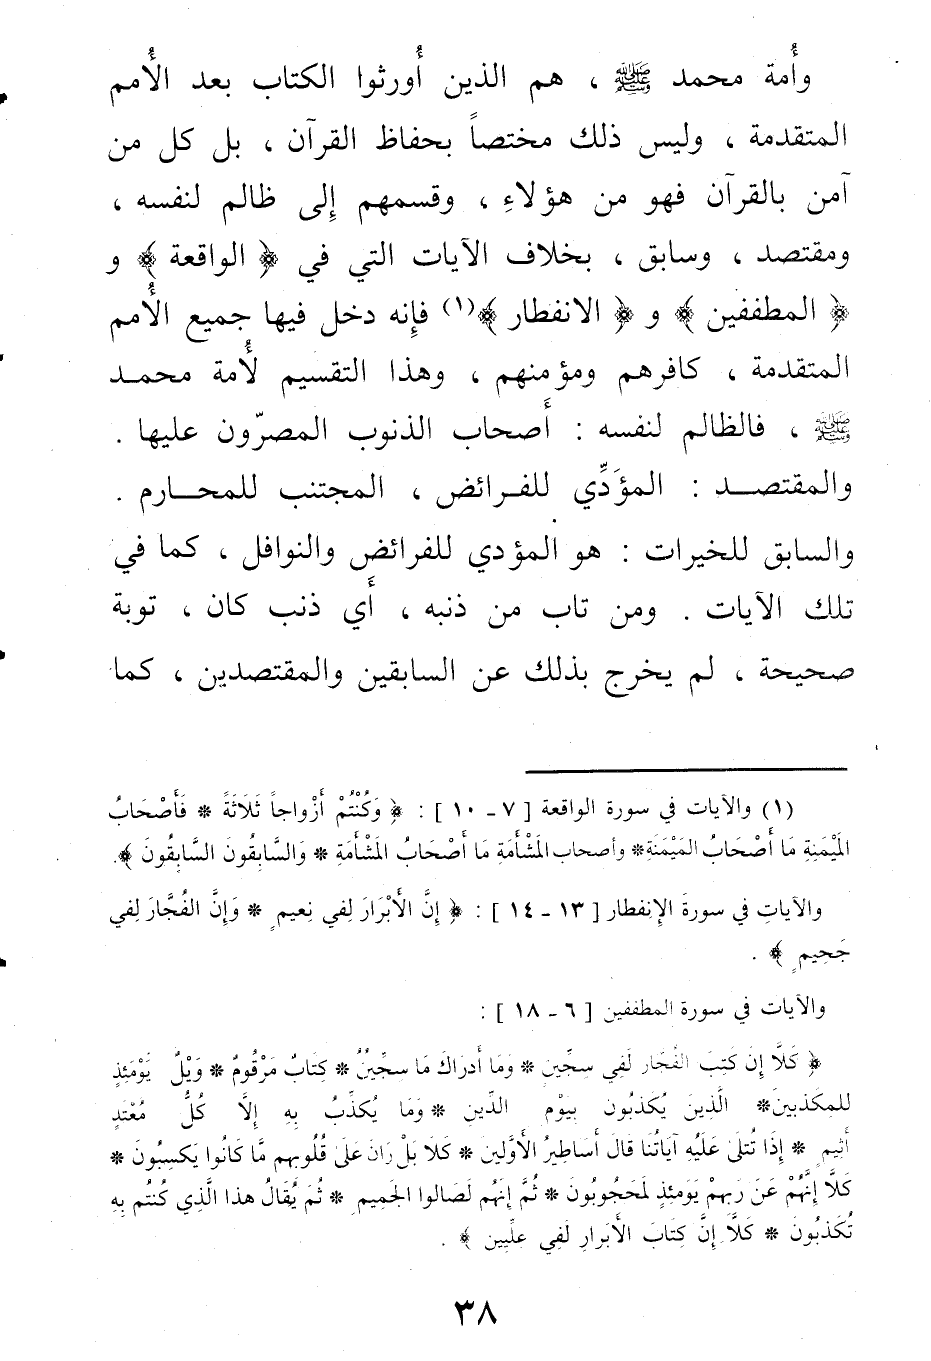 وأُمة محمد ﷺ ، هم الذين أُورثوا الكتاب بعد الأُمم
المتقدمة ، وليس ذلك مختصاً بحفاظ القرآن ، بل كل من
آمن بالقرآن فهو من هؤلاءِ ، وقسمهم إِلى ظالم لنفسه ،
ومقتصد ، وسابق ، بخلاف الآيات التي في ﴿ الواقعة ﴾ و
﴿ المطففين ﴾ و ﴿ الانفطار ﴾(١) فإِنه دخل فيها جميع الأُمم
المتقدمة ، كافرهم ومؤمنهم ، وهذا التقسيم لأُمة محمد
ﷺ ، فالظالم لنفسه : أَصحاب الذنوب المصرّون عليها .
والمقتصد : المؤَدِّي للفرائض ، المجتنب للمحارم .
والسابق للخيرات : هو المؤدي للفرائض والنوافل ، كما في
تلك الآيات . ومن تاب من ذنبه ، أَي ذنب كان ، توبة
صحيحة ، لم يخرج بذلك عن السابقين والمقتصدين ، كما
(١) والآيات في سورة الواقعة [ ٧ - ١٠ ] : ﴿ وَكُنْتُمْ أَزْواجاً ثَلَاثَةً * فَأَصْحَابُ
المَيْمَنِةِ مَا أَصْحَابُ المَيْمَنَة* وأصحاب المَشْأَمَةِ مَا أَصْحَابُ المَشْأَمَةِ * وَالسَّابِقُونَ السَّابِقُونَ ﴾.
والآياتِ في سورةَ الإِنفطار [ ١٣ - ١٤ ] : ﴿ إِنَّ الأَبْرَارَ لِفي نِعيمٍ * وَإِنَّ الفُجَّارَ لِفي
جَحِيمٍ ﴾ .
والآيات في سورة المطففين [ ٦ - ١٨ ] :
﴿ كَلَّا إِنَ كَتِبَ الفُجَار لَفِي سجِّينٍ * وَمَا أَدراكَ مَا سجِّينٌ * كِتَابٌ مَرْقُومٌ * وَيْلٌ يَوْمَئِذٍ
للمِكَذبينَ* الَّذِينَ يُكَذبُون بِيَوْمِ الدِّينِ * وَمَا يُكذِّبُ بِهِ إِلَّا كُلُّ مُعْتَدٍ
أَثِيمٍ * إِذَا تُتلَى عَلَيْهِ آيَاتُنَا قالَ أَساطِيرُ الأَوَّلين * كَلَا بَلْ رَانَ عَلَى قُلُوبِهِم مَّا كَانُوا يَكسِبُونَ *
كَلَّا إِنَّهُمْ عَنَ رَبِهمْ يَوَمئِذٍ لمَحجُوبُونَ * ثُمَّ إِنهُم لَصَالوا الجَمِيم * ثُم يُقَالُ هذا الَّذِي كُنتُم بِهِ
تُكَذبُونَ * كَلاَّ إِنَّ كِتَابَ الأَبرارِ لَفِي علِّيين ﴾ .
٣٨